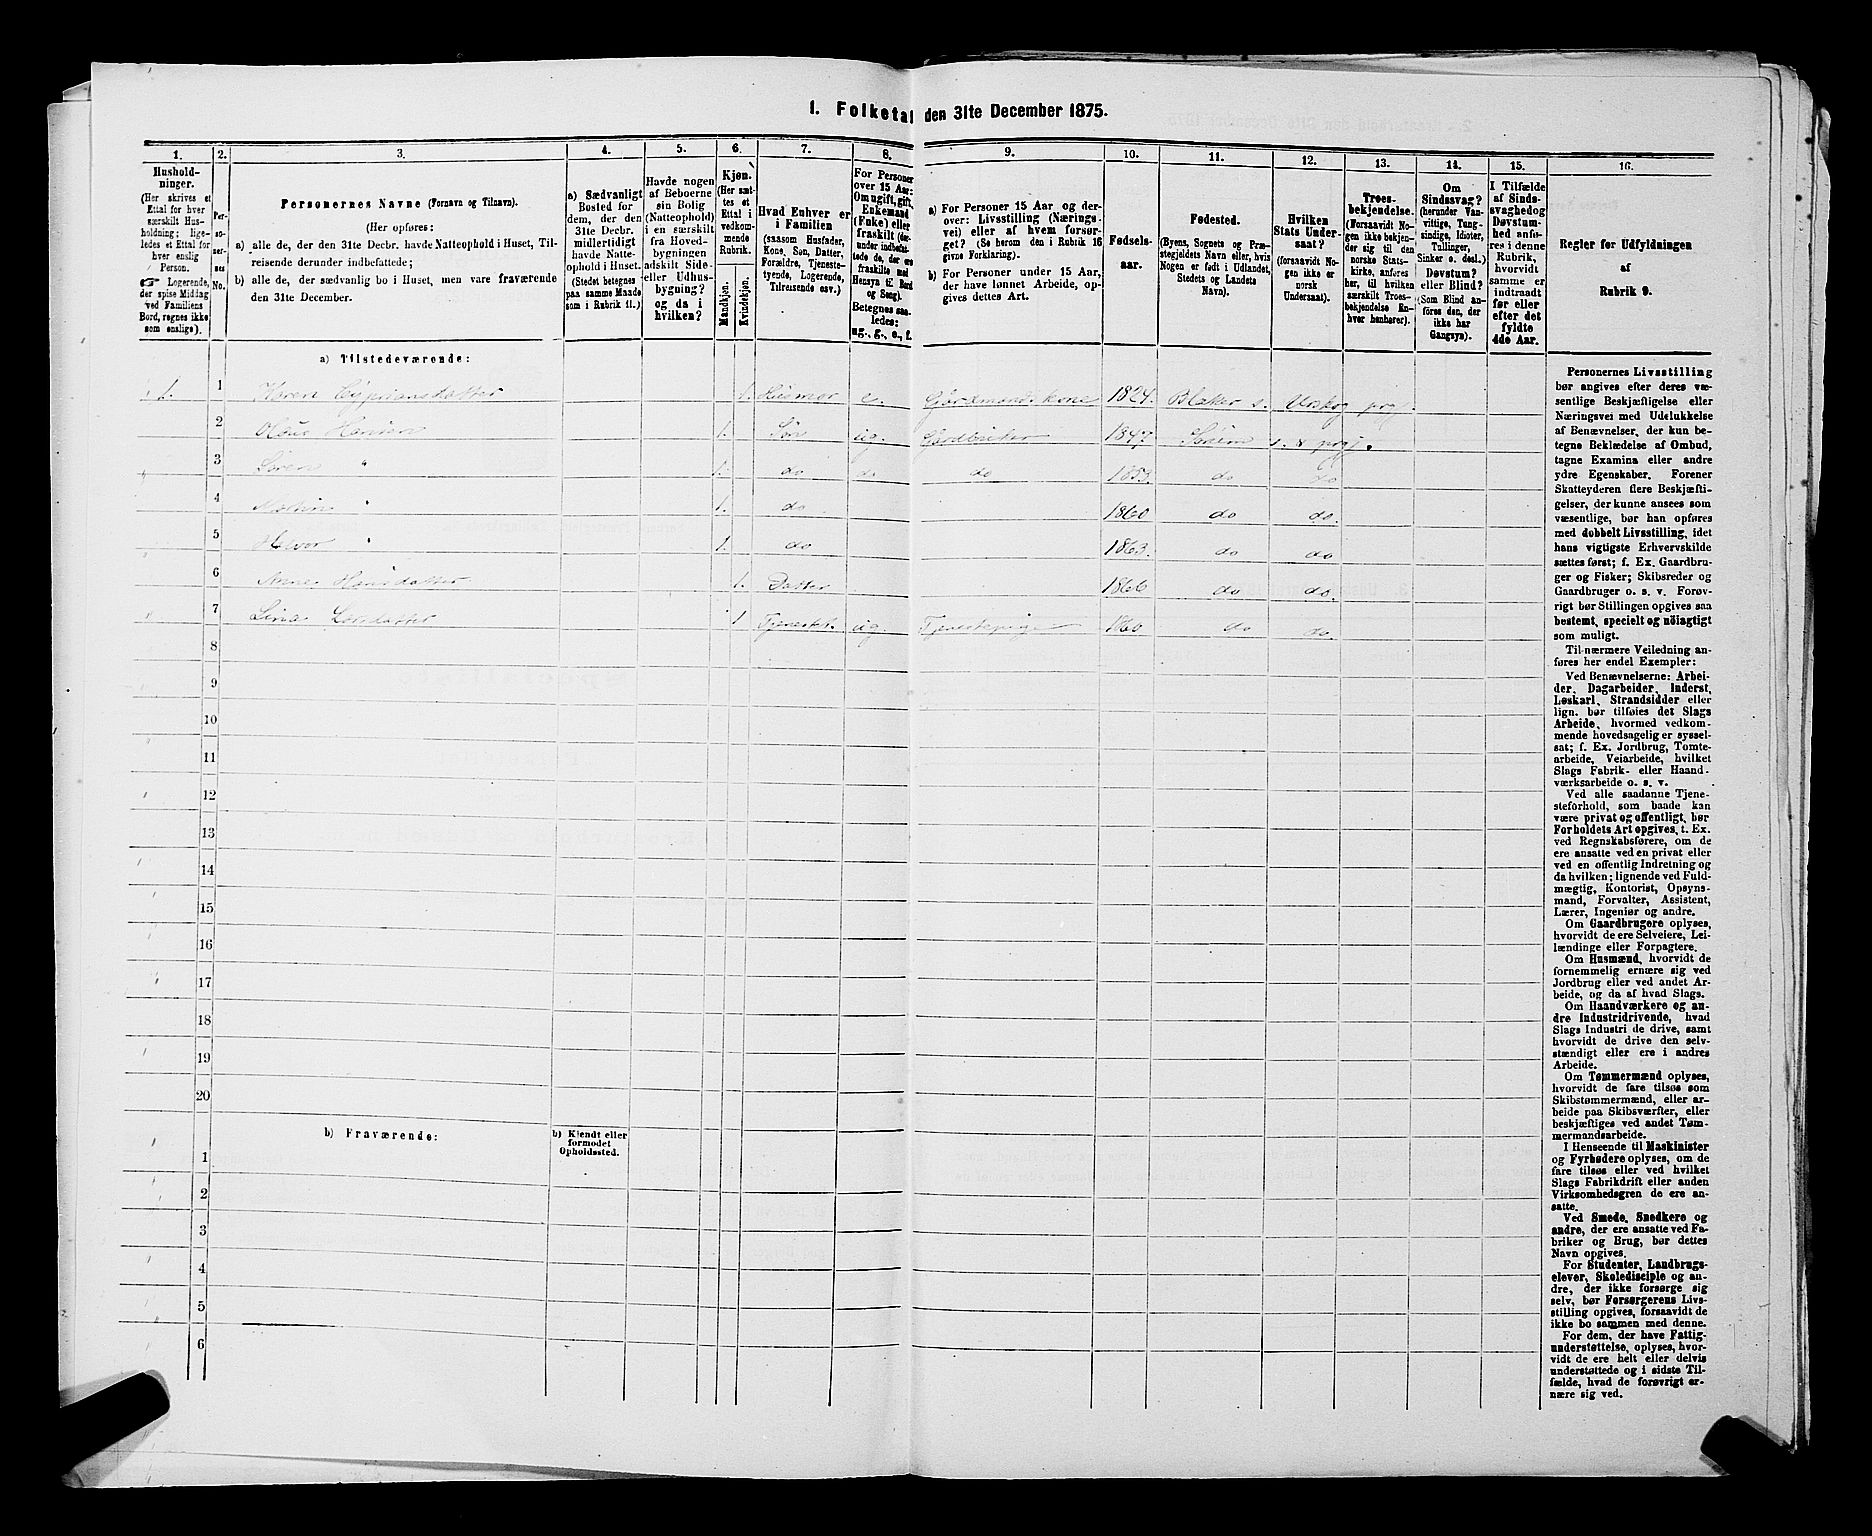 1. Folketal den 31te December 1875.
1. 2. 3. 4. 5. 6. 7. 8. 9. 10. 11. 12. 13. 14. 15. 16.
Hushold-
ninger.
(Her skrives et
Ettal for hver
særskilt Hus-
holdning; lige-
ledes et Ettal for
hver enslig
Person.
☞ Logerende,
der spise Middag
ved Familiens
Bord, regnes ikke
som enslige).
Per-
so-
ner-
nes
No.
Personernes Navne (Fornavn og Tilnavn).
(Her opføres:
a) alle de, der den 31te Decbr. havde Natteophold i Huset, Til-
reisende derunder indbefattede;
b) alle de, der sædvanlig bo i Huset, men vare fraværende
den 31te December.
a) Sædvanligt
Bosted for
dem, der den
31te Decbr.
midlertidigt
havde Natte-
ophold i Huset.
(Stedet betegnes
paa samme Maade
som i Rubrik 11.)
Havde nogen
af Beboerne
sin Bolig
(Natteophold)
i en særskilt
fra Hoved-
bygningen
adskilt Side-
eller Udhus-
bygning?
og da i
hvilken?
Kjøn.
(Her sæt-
tes et
Ettal i
vedkom-
mende
Rubrik.
Mandkjøn.
Kvindekjøn.
Hvad Enhver er
i Familien
(saasom Husfader,
Kone, Søn, Datter,
Forældre, Tjeneste-
tyende, Logerende,
Tilreisende osv.)
For Personer
over 15 Aar:
Om ugift, gift,
Enkemand
(Enke) eller
fraskilt (der-
under indbefat-
tede de, der ere
fraskilte med
Hensyn til Bord
og Seng).
Betegnes saa-
ledes:
ug., g., e., f.
a) For Personer 15 Aar og der-
over: Livsstilling (Nærings-
vei) eller af hvem forsør-
get? (Se herom den i Rubrik 16
givne Forklaring).
b) For Personer under 15 Aar,
der have lønnet Arbeide, op-
gives dettes Art.
Fødsels-
aar.
Fødested.
(Byens, Sognets og Præ-
stegjeldets Navn eller, hvis
Nogen er født i Udlandet,
Stedets og Landets
Navn).
Hvilken
Stats Under-
saat?
(forsaavidt No-
gen ikke er
norsk
Undersaat).
Troes-
bekjendelse.
(Forsaavidt No-
gen ikke bekjen-
der sig til den
norske Stats-
kirke, anføres
her, til hvilken
særskilt Troes-
bekjendelse En-
hver henhører).
Om
Sindssvag?
(herunder Van-
vittige, Tung-
sindige, Idioter,
Tullinger,
Sinker o. desl.)
Døvstum?
eller Blind?
(Som Blind an-
føres den, der
ikke har
Gangsyn).
I Tilfælde
af Sinds-
svaghed og
Døvstum-
hed anfø-
res i denne
Rubrik,
hvorvidt
samme er
indtraadt
før eller
efter det
fyldte
4de Aar.
Regler for Udfyldningen
af
Rubrik 9.
a) Tilstedeværende:
1. 1 Karen Cypriansdatter 1. Husmor e. Gårdmandskone 1824. Blaker s. Urskog prgj.
2 Olaus Hansen 1. Søn ug. Gårdbruker 1847 Sørum s. & prgj.
3 Søren " 1. do do do 1853. do do
4 " 1. do 1860 do do.
5 Halvor " 1. do 1863. do do
6 Anne Hansdatter 1. Datter 1866 do do.
7 Lina Larsdatter 1 Tjenestet. ug Tjenestepige 1860 do do.
8
9
10
11
12
13
14
15
16
17
18
19
20
b) Fraværende:
b) Kjendt eller
formodet
Opholdssted.
1
2
3
4
5
6
Personernes Livsstilling
bør angives efter deres væ-
sentlige Beskjæftigelse eller
Næringsvei med Udelukkelse
af Benævnelser, der kun be-
tegne Beklædelse af Ombud,
tagne Examina eller andre
ydre Egenskaber. Forener
Skatteyderen flere Beskjæfti-
gelser, der kunne ansees som
væsentlige, bør han opføres
med dobbelt Livsstilling, idet
hans vigtigste Erhvervskilde
sættes først; f. Ex. Gaardbru-
ger og Fisker; Skibsreder og
Gaardbruger o. s. v. Forøv-
rigt bør Stillingen opgives saa
bestemt, specielt og nöiagtigt
som muligt.
Til nærmere Veiledning an-
føres her endel Exempler:
Ved Benævnelserne: Arbei-
der, Dagarbeider, Inderst,
Løskarl, Strandsidder eller
lign. bør tilføies det Slags
Arbeide, hvormed vedkom-
mende hovedsagelig er syssel-
sat; f. Ex. Jordbrug, Tomte-
arbeide, Veiarbeide, hvilket
Slags Fabrik- eller Haand-
værksarbeide o. s. v.
Ved alle saadanne Tjene-
steforhold, som baade kan
være privat og offentligt, bør
Forholdets Art opgives, t. Ex.
ved Regnskabsførere, om de
ere ansatte ved en privat eller
ved en offentlig Indretning og
da hvilken; lignende ved Fuld-
mægtig, Kontorist, Opsyns-
mand, Forvalter, Assistent,
Lærer, Ingeniør og andre.
Om Gaardbrugere oplyses,
hvorvidt de ere Selveiere, Lei-
lændinge eller Forpagtere.
Om Husmænd, hvorvidt de
fornemmelig ernære sig ved
Jordbrug eller ved andet Ar-
beide, og da af hvad Slags.
Om Haandværkere og an-
dre Industridrivende, hvad
Slags Industri de drive, samt
hvorvidt de drive den selv-
stændigt eller ere i andres
Arbeide.
Om Tømmermænd oplyses,
hvorvidt de fare tilsøs som
Skibstømmermænd, eller ar-
beide paa Skibsværfter, eller
beskjæftiges ved andet Tøm-
mermandsarbeide.
I Henseende til Maskinister
og Fyrbødere oplyses, om de
fare tilsøs eller ved hvilket
Slags Fabrikdrift eller anden
Virksomhedsgren de ere an-
satte.
Ved Smede, Snedkere og
andre, der ere ansatte ved Fa-
briker og Brug, bør dettes
Navn opgives.
For Studenter, Landbrugs-
elever, Skoledisciple og an-
dre, der ikke forsørge sig
selv, bør Forsørgerens Livs-
stilling opgives, forsaavidt de
ikke bo sammen med denne.
For dem, der have Fattig-
understøttelse, oplyses, hvor-
vidt de ere helt eller delvis
understøttede og i sidste Til-
fælde, hvad de forøvrigt er-
nære sig ved.